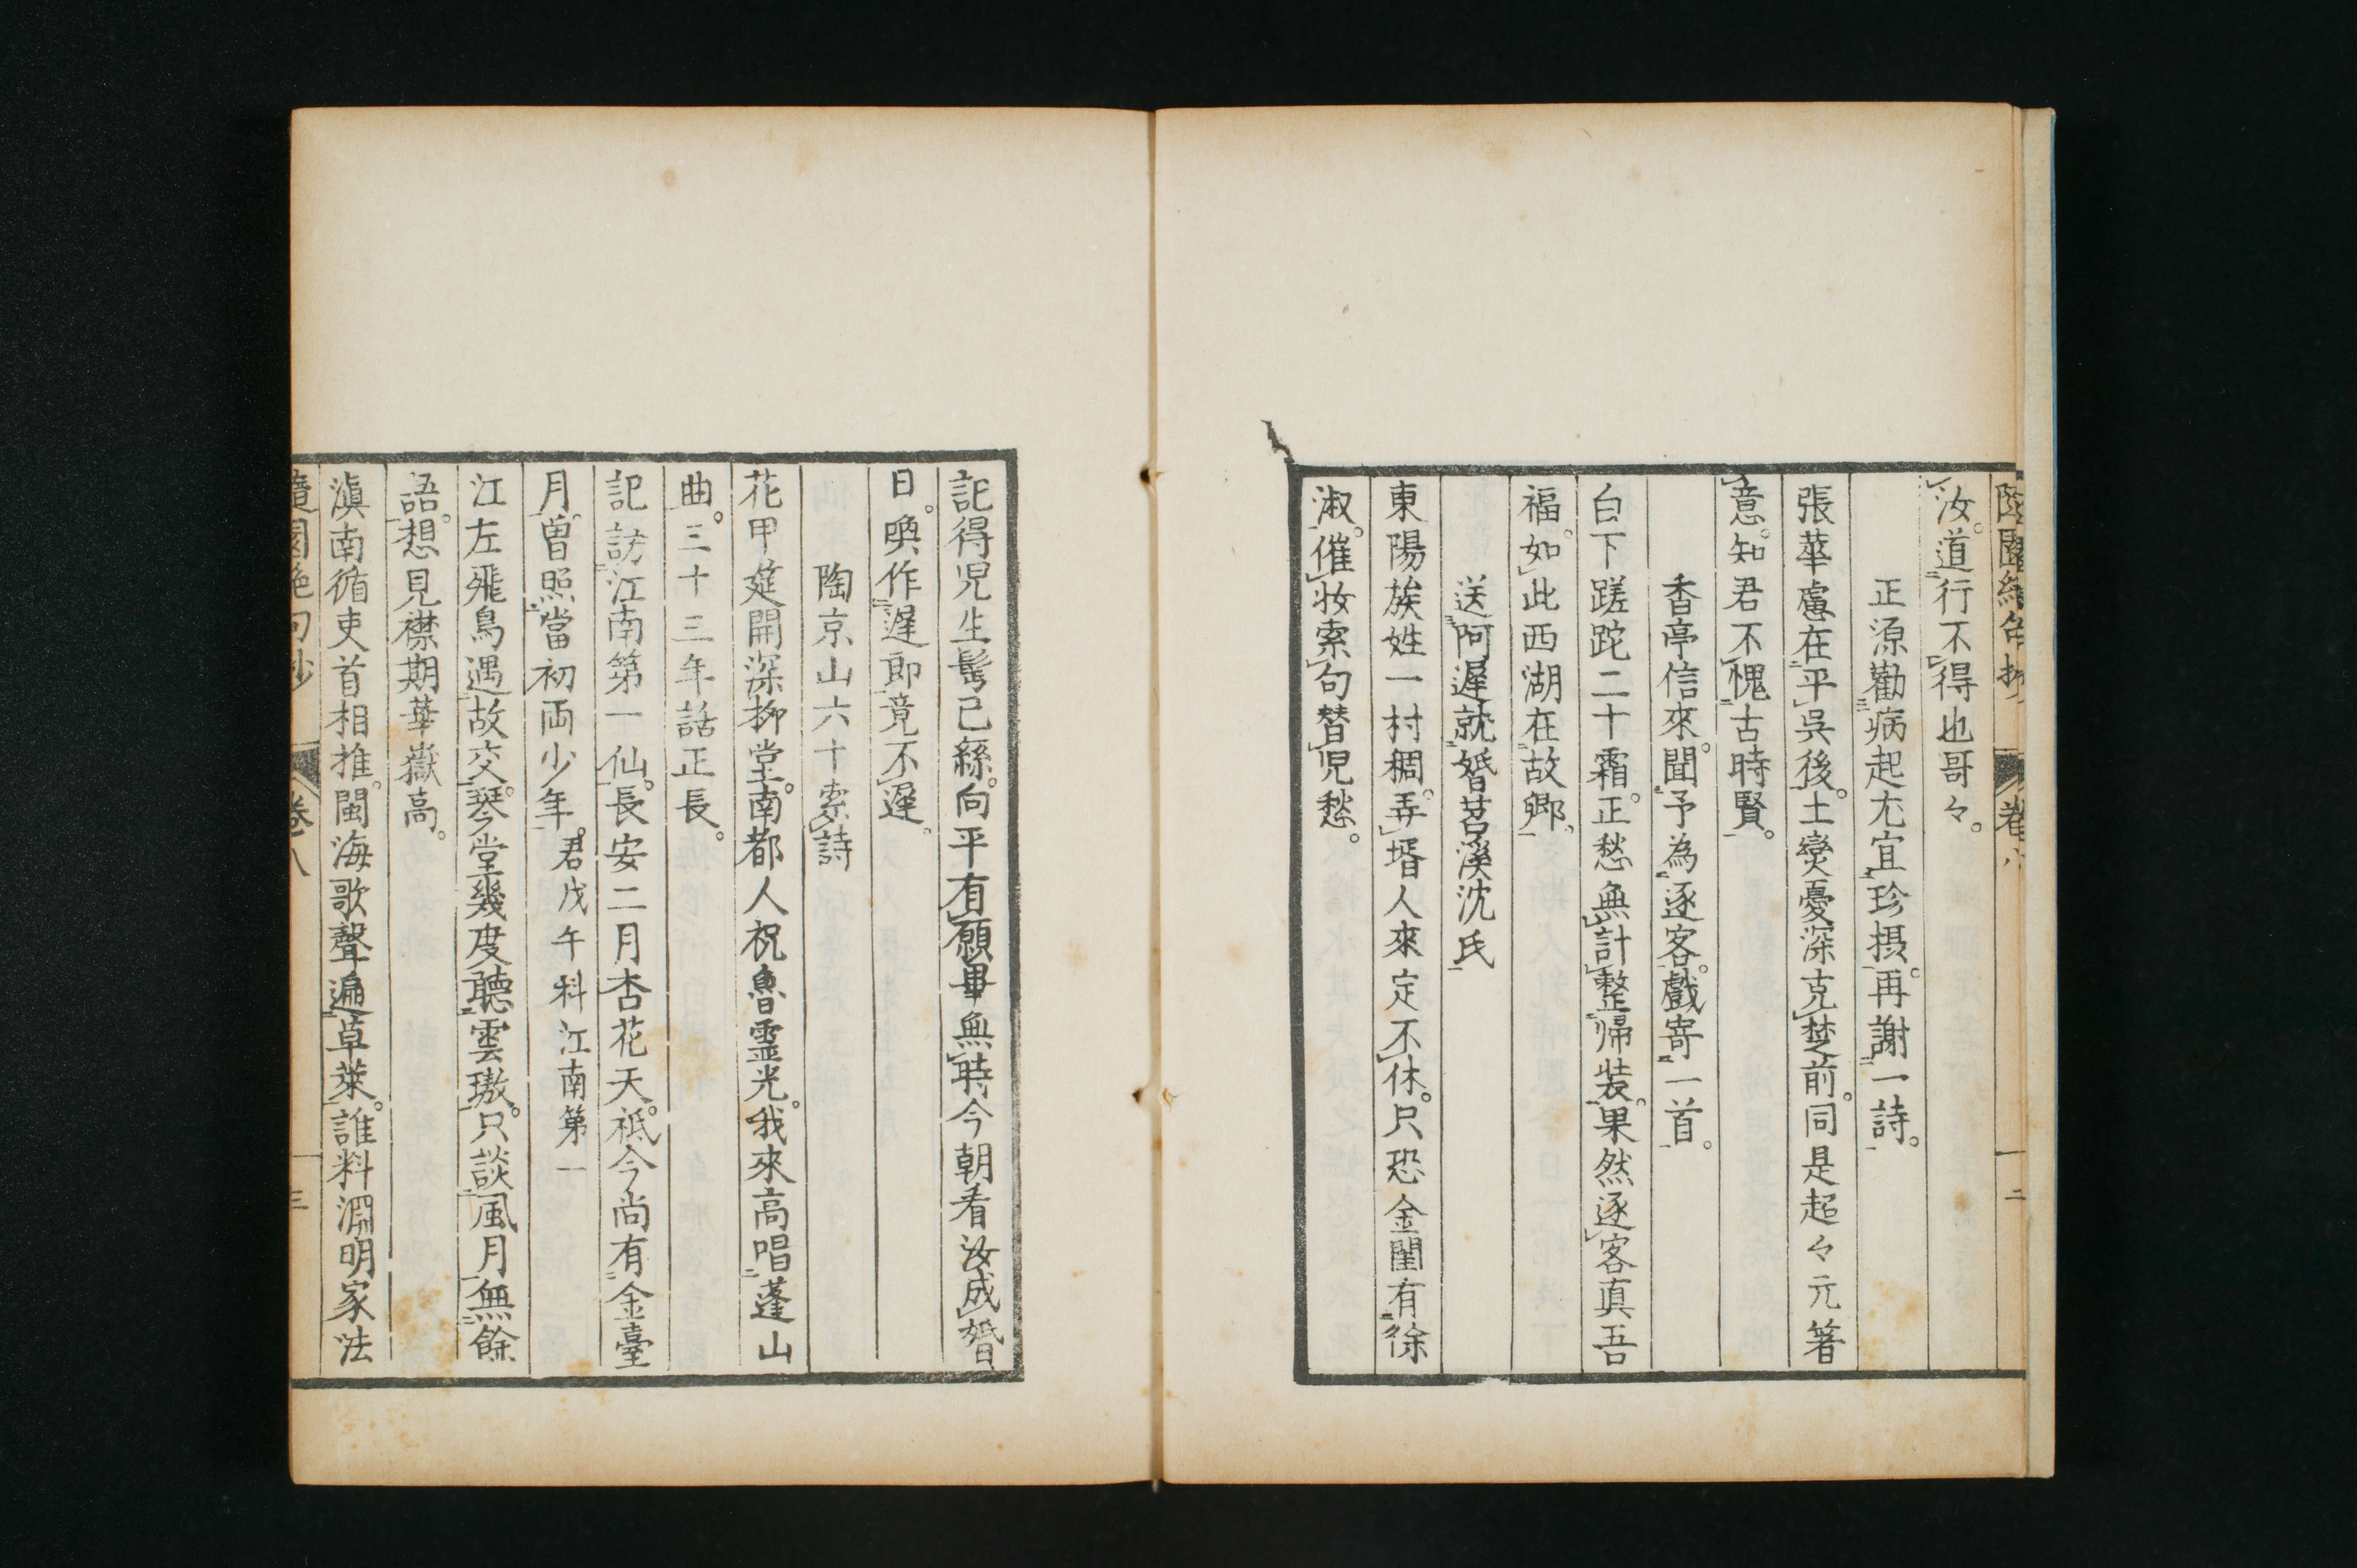 隨園絕句抄 卷八 二
汝。道行不得也哥々。
正源勸病起尤宜珍摂。再謝一詩。
張華慮在平吳後。士燮憂深克楚前。同是超々元箸
意。知君不愧古時賢。
香亭信來。聞予為逐客。戲寄一首。
白下蹉跎二十霜。正愁無計整帰装。果然逐客真吾
福。如此西湖在故鄉。
送阿遲就婚苕溪沈氏
東陽族姓一村稠。弄壻人來定不休。只恐金閨有徐
淑。催妝索句替児愁。
記得児生髩已絲。向平有願畢無時今朝看汝成婚
日。喚作遲郎竟不遲。
陶京山六十索詩
花甲筵開深柳堂。南都人祝魯靈光。我來高唱蓬山
曲。三十三年話正長。
記訪江南第一仙。長安二月杏花天。祗今尚有金臺
月。曽照當初両少年。君戊午科江南第一
江左飛鳥遇故交。琴堂幾度聽雲璈。只談風月無餘
語。想見襟期華嶽高。
滇南循吏首相推。閩海歌聲遍草萊。誰料淵明家法
隨園絕句抄 卷八 三